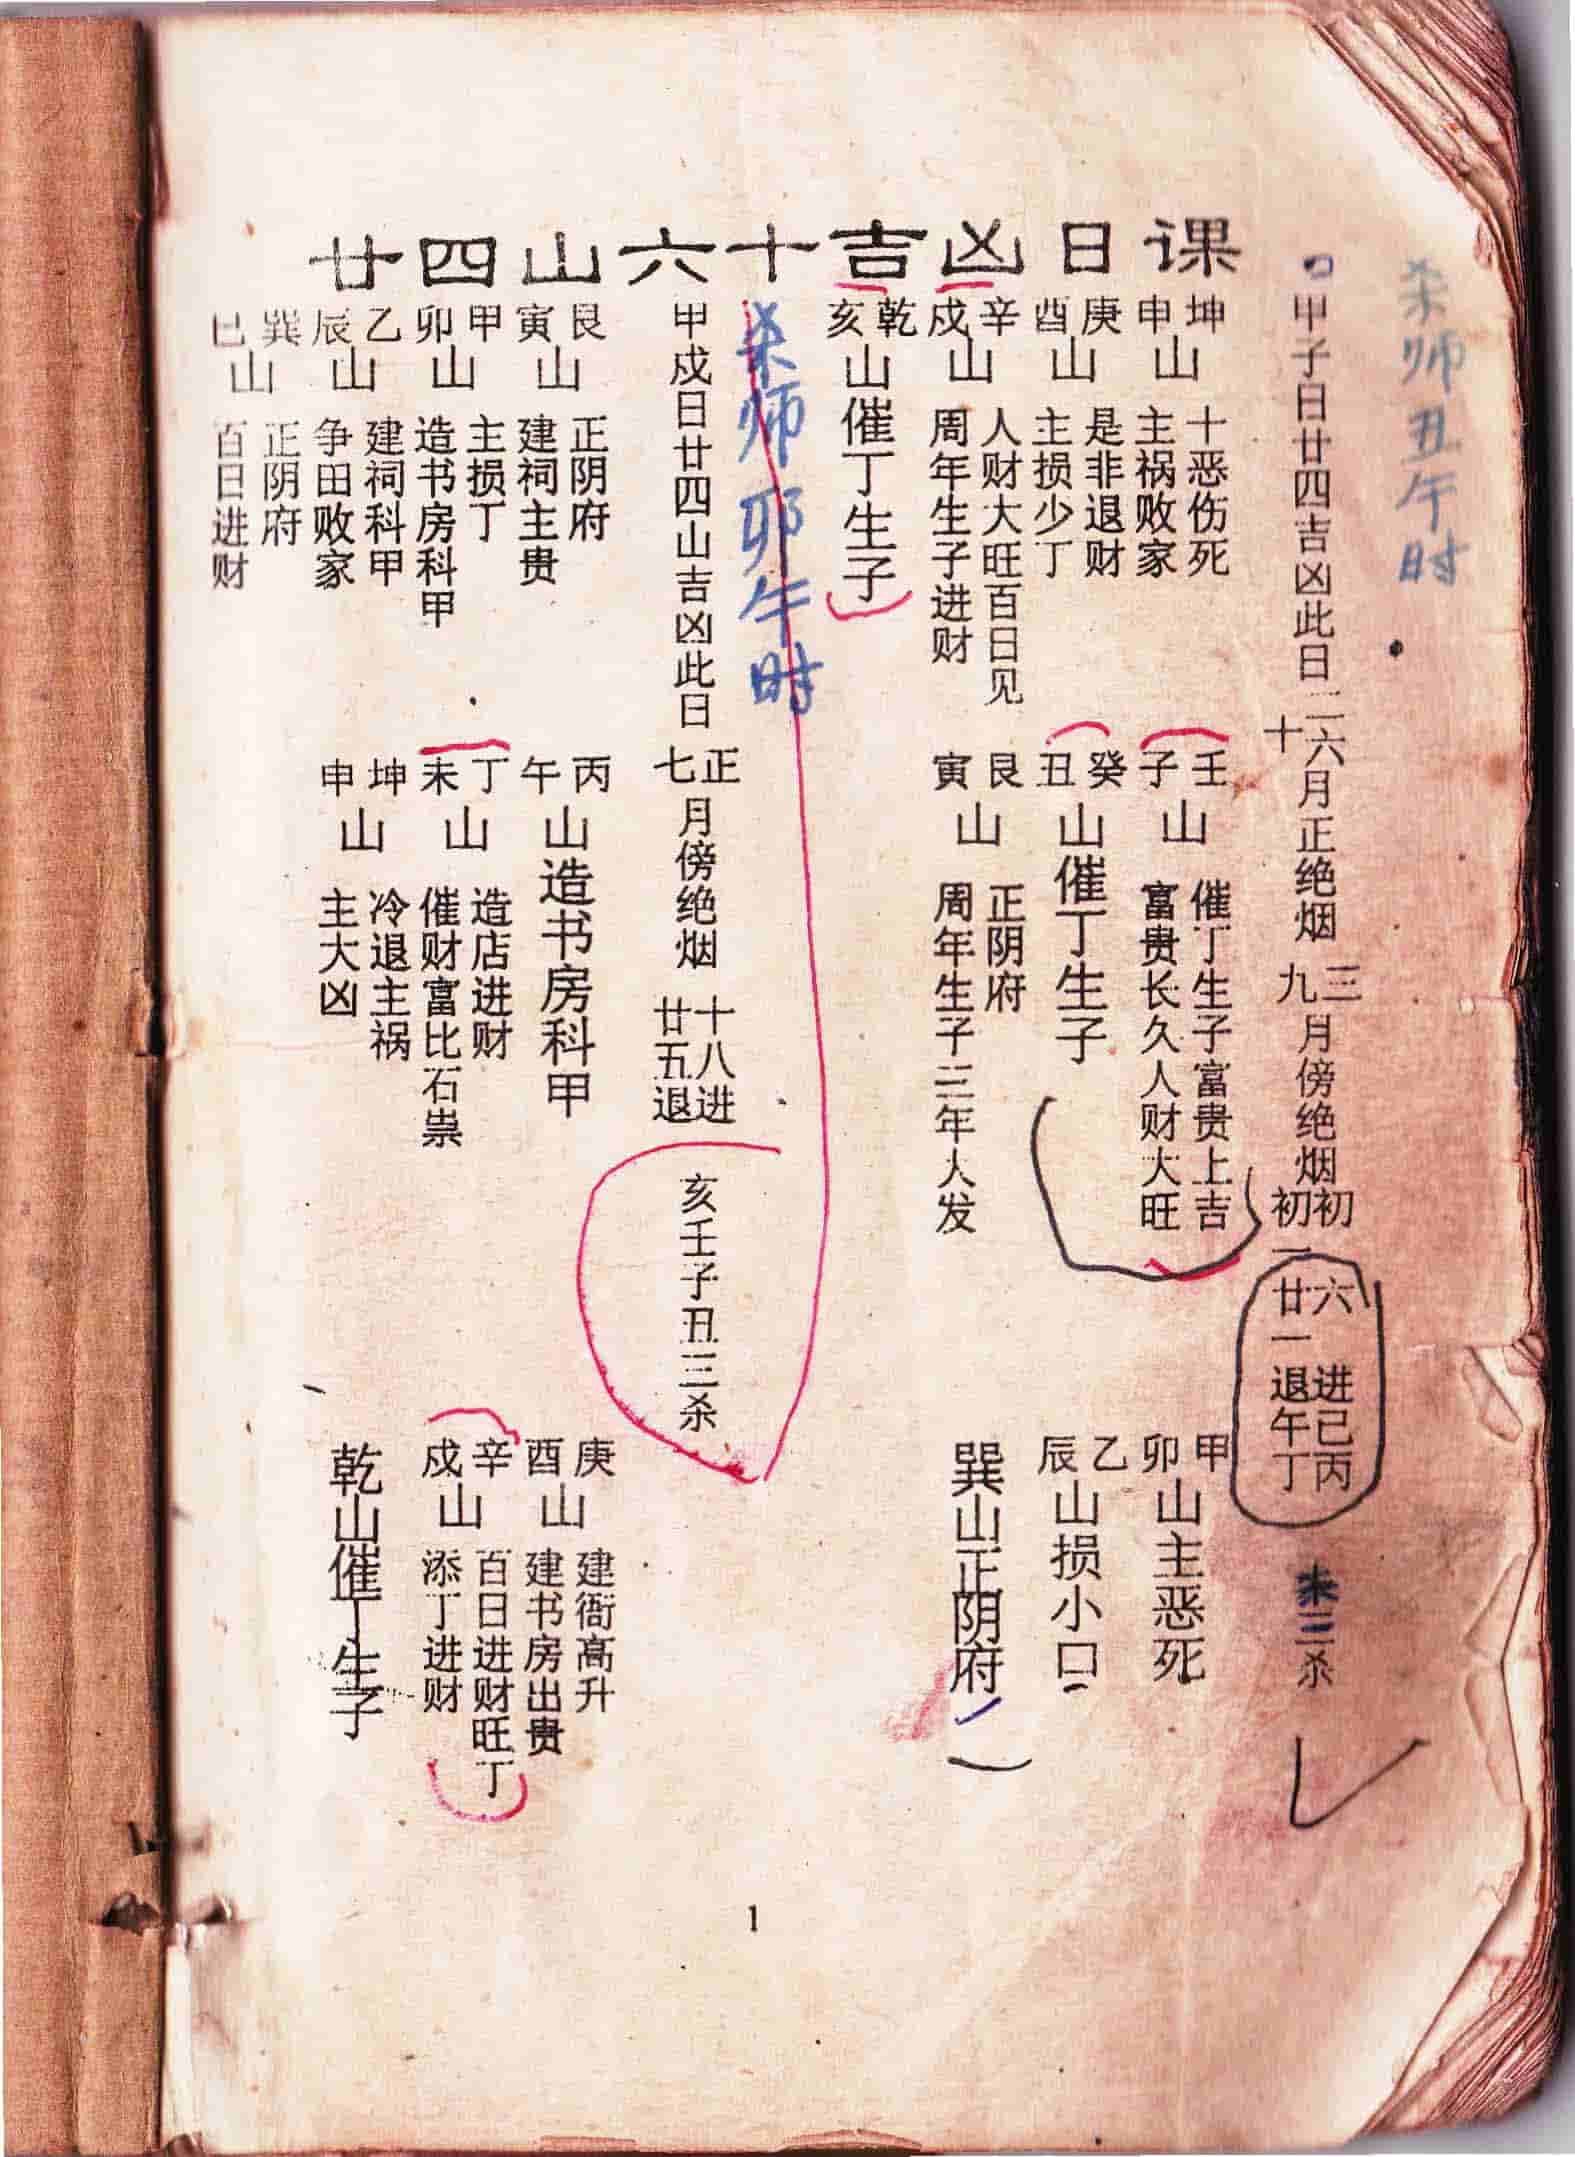 廿四山六十吉凶日课
杀师丑午时
甲子日廿四吉凶此日二六十月正绝烟 三九月傍绝烟 初六进 初一廿一退 巳丙午丁未三杀
坤申山 十恶伤死 主祸败家
庚酉山 是非退财 主损少丁
辛戍山 人财大旺百日见 周年生子进财
乾亥山催丁生子
壬子山 催丁生子富贵上吉 富贵长久人财大旺
癸丑山催丁生子
艮寅山 正阴府 周年生子三年人发
甲卯山主恶死
乙辰山损小口
巽山正阴府
杀师卯午时
甲戍日廿四山吉凶此日 正七月傍绝烟 十八进 廿五退 亥壬子丑三杀
艮寅山 正阴府 建祠主贵
甲卯山 主损丁 造书房科甲
乙辰山 建祠科甲 争田败家
巽巳山 正阴府 百日进财
丙午山造书房科甲
丁未山 造店进财 催财富比石祟
坤申山 冷退主祸 主大凶
庚酉山 建衙高升 建书房出贵
辛戍山 百日进财旺丁 添丁进财
乾山催丁生子
1